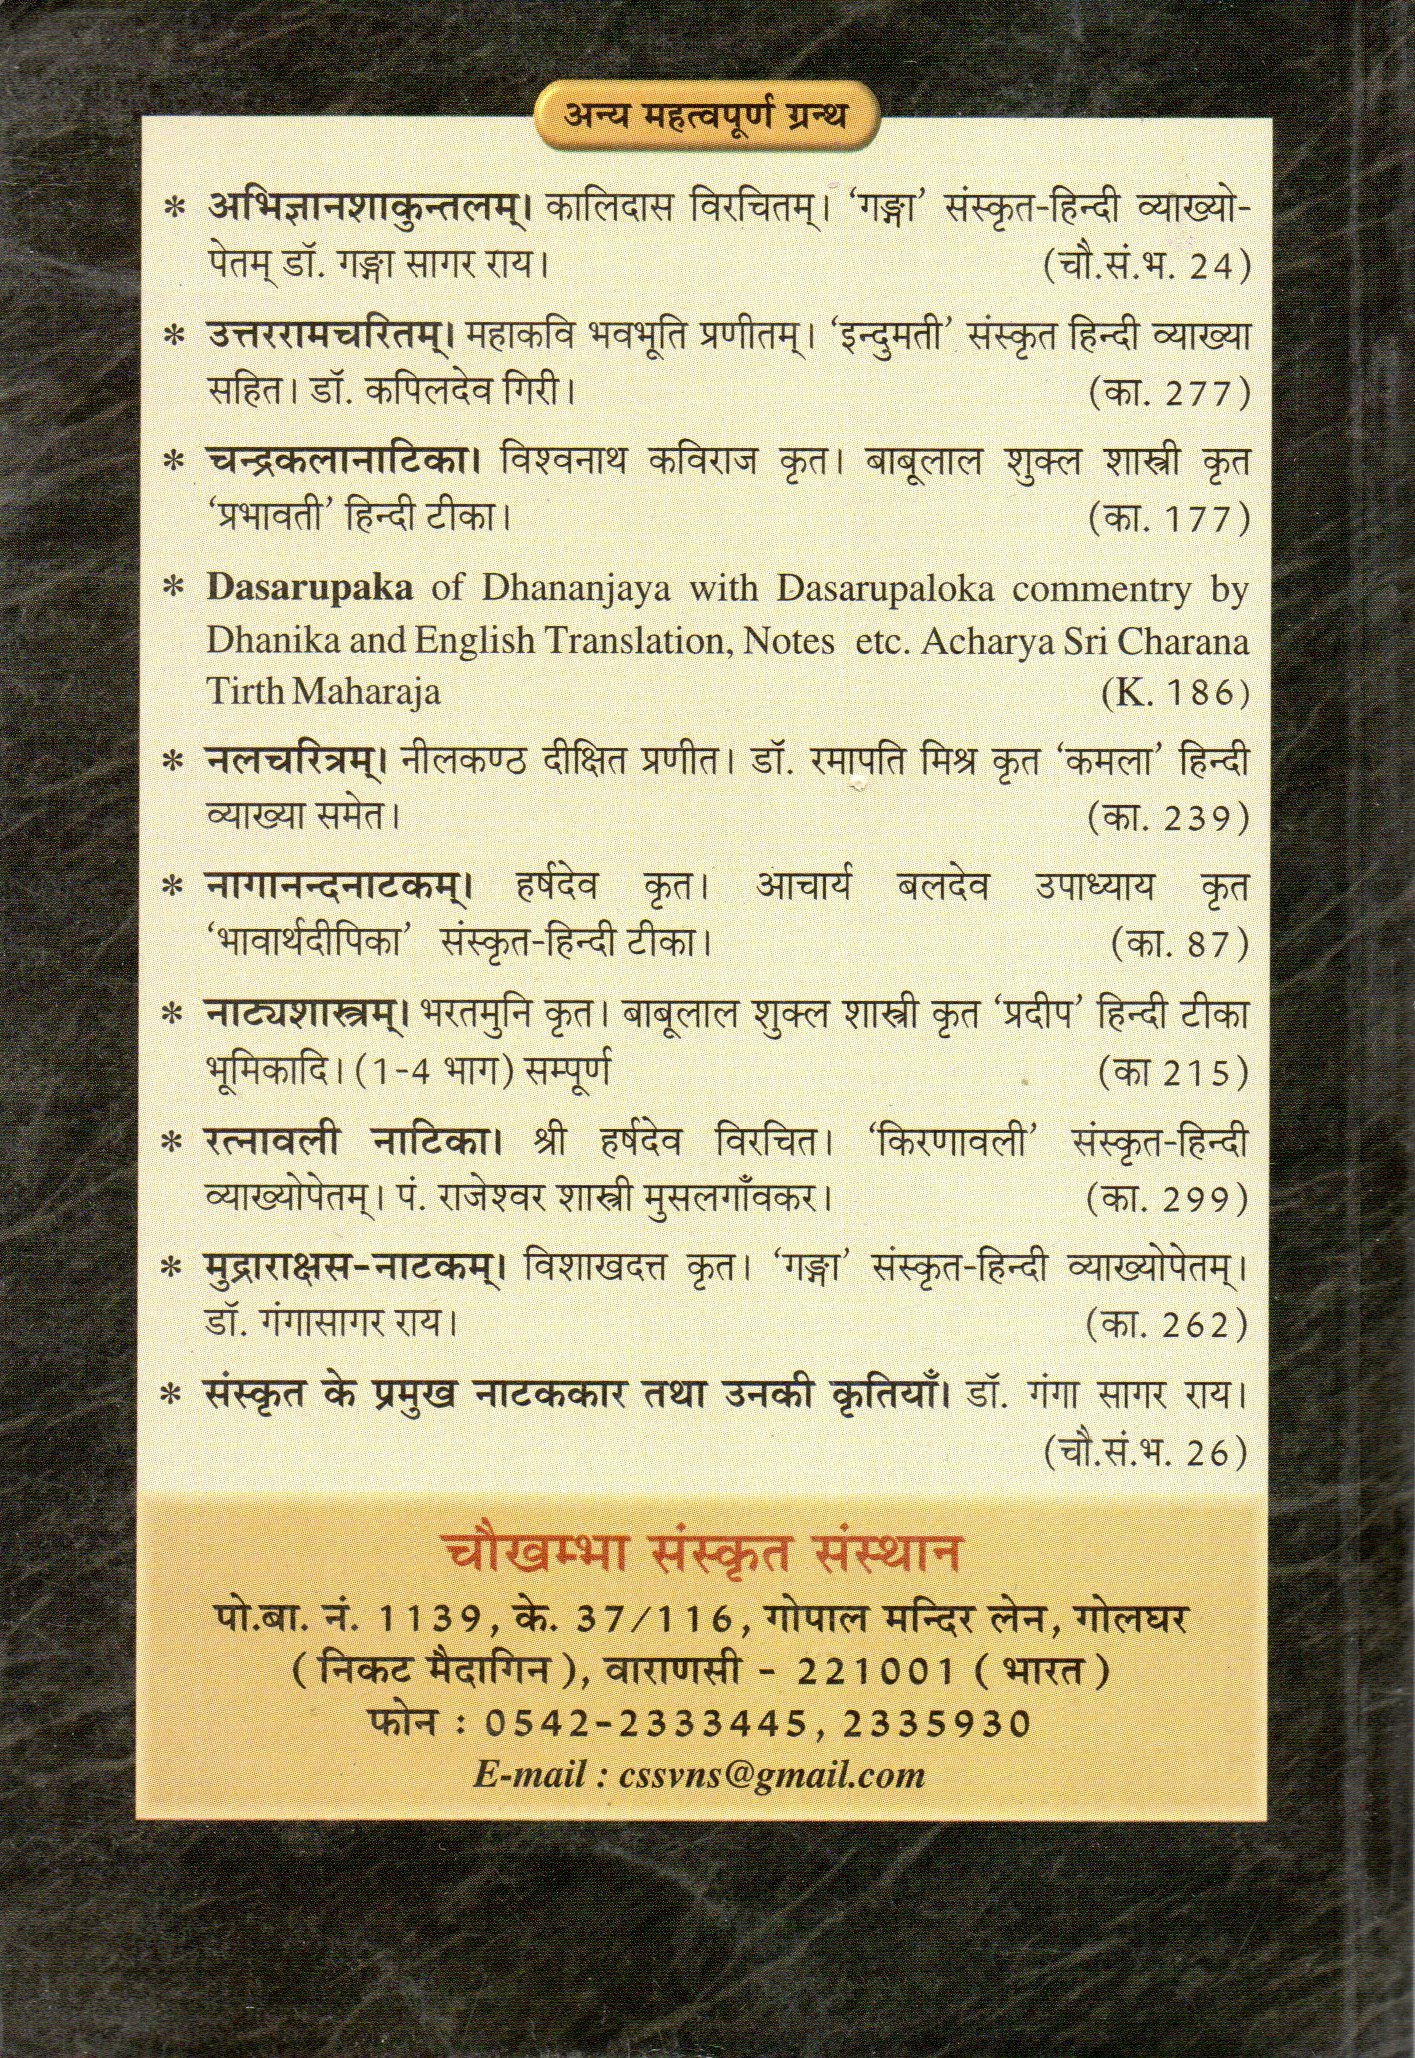 अन्य महत्वपूर्ण ग्रन्थ
* अभिज्ञानशाकुन्तलम्। कालिदास विरचितम्। ‘गङ्गा’ संस्कृत-हिन्दी व्याख्यो-
पेतम् डॉ. गङ्गा सागर राय। (चौ.सं.भ. 24)
* उत्तररामचरितम्। महाकवि भवभूति प्रणीतम्। ‘इन्दुमती’ संस्कृत हिन्दी व्याख्या
सहित। डॉ. कपिलदेव गिरी। (का. 277)
* चन्द्रकलानाटिका। विश्वनाथ कविराज कृत। बाबूलाल शुक्ल शास्त्री कृत
‘प्रभावती’ हिन्दी टीका। (का. 177)
* Dasarupaka of Dhananjaya with Dasarupaloka commentry by
Dhanika and English Translation, Notes etc. Acharya Sri Charana
Tirth Maharaja (K. 186)
* नलचरित्रम्। नीलकण्ठ दीक्षित प्रणीत। डॉ. रमापति मिश्र कृत ‘कमला’ हिन्दी
व्याख्या समेत। (का. 239)
* नागानन्दनाटकम्। हर्षदेव कृत। आचार्य बलदेव उपाध्याय कृत
‘भावार्थदीपिका’ संस्कृत-हिन्दी टीका। (का. 87)
* नाट्यशास्त्रम्। भरतमुनि कृत। बाबूलाल शुक्ल शास्त्री कृत ‘प्रदीप’ हिन्दी टीका
भूमिकादि। (1-4 भाग) सम्पूर्ण (का 215)
* रत्नावली नाटिका। श्री हर्षदेव विरचित। ‘किरणावली’ संस्कृत-हिन्दी
व्याख्योपेतम्। पं. राजेश्वर शास्त्री मुसलगाँवकर। (का. 299)
* मुद्राराक्षस-नाटकम्। विशाखदत्त कृत। ‘गङ्गा’ संस्कृत-हिन्दी व्याख्योपेतम्।
डॉ. गंगासागर राय। (का. 262)
* संस्कृत के प्रमुख नाटककार तथा उनकी कृतियाँ। डॉ. गंगा सागर राय।
(चौ.सं.भ. 26)
चौखम्भा संस्कृत संस्थान
पो.बा. नं. 1139, के. 37/116, गोपाल मन्दिर लेन, गोलघर
( निकट मैदागिन ), वाराणसी - 221001 ( भारत )
फोन : 0542-2333445, 2335930
E-mail : cssvns@gmail.com